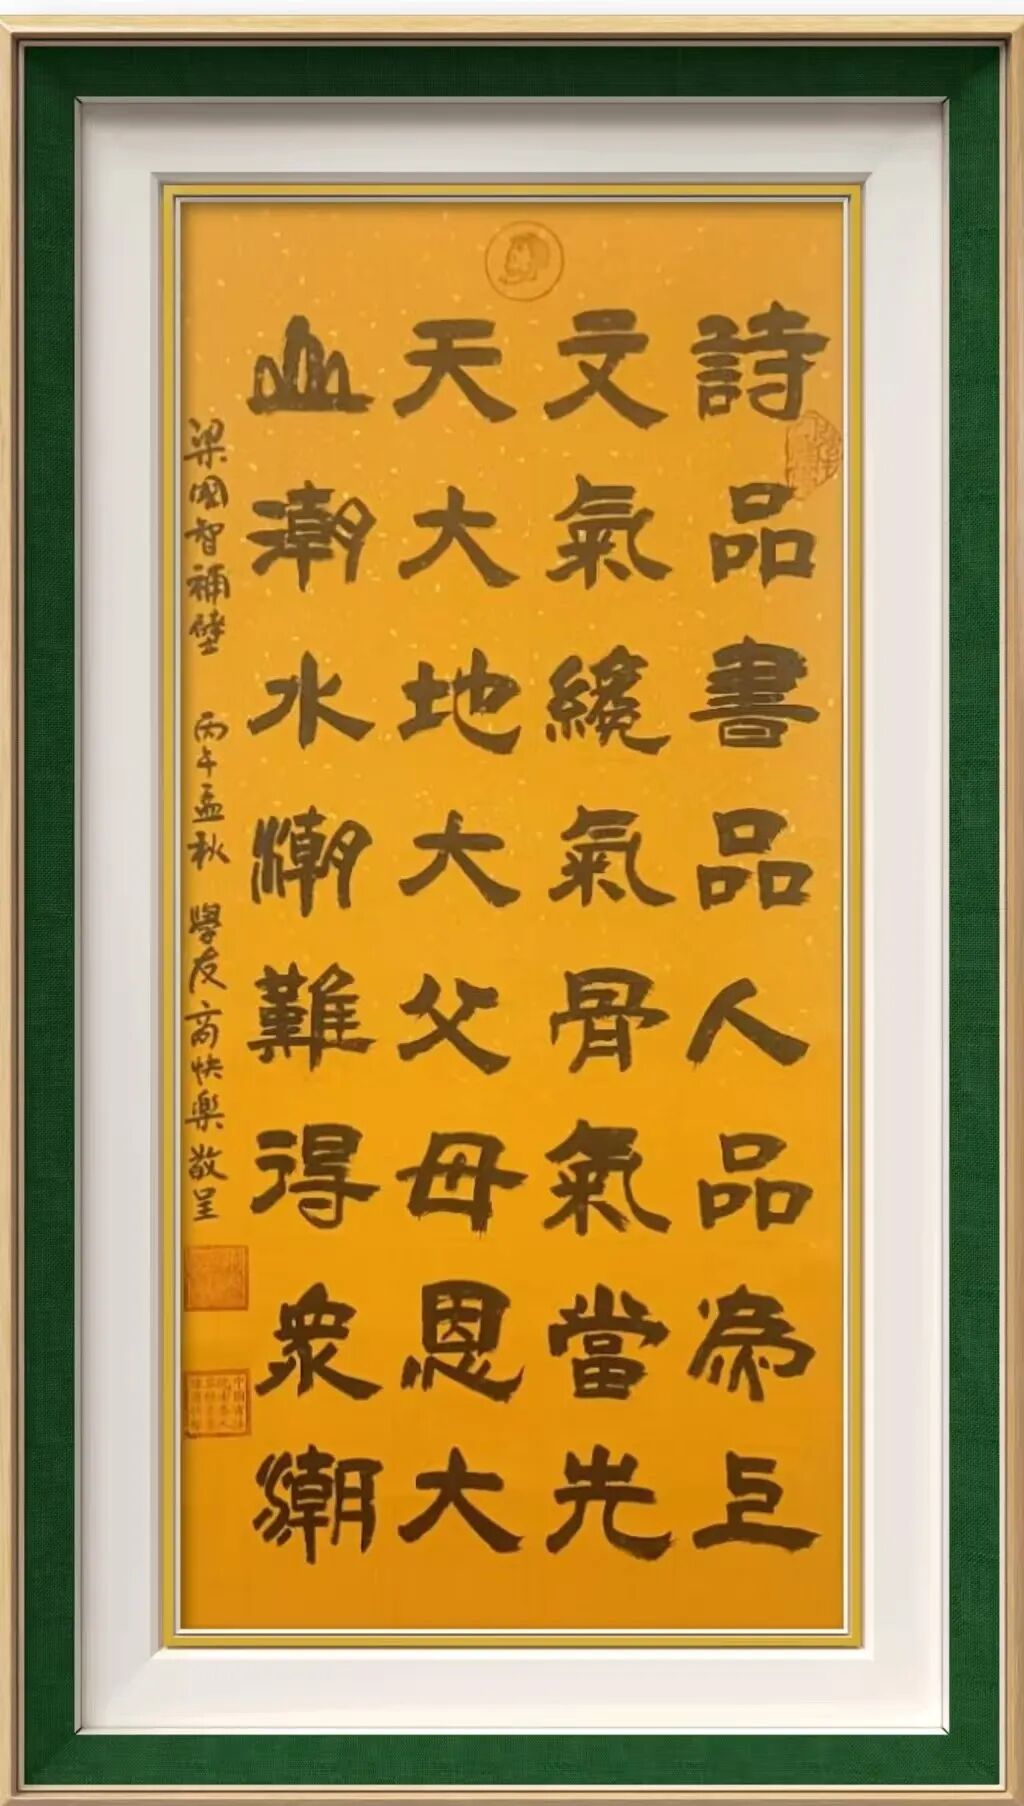 詩品書品人品為上
文氣才氣骨氣當先
天大地大父母恩大
山潮水潮難得眾潮
梁國智補壁 丙午孟秋 學友商快樂敬呈